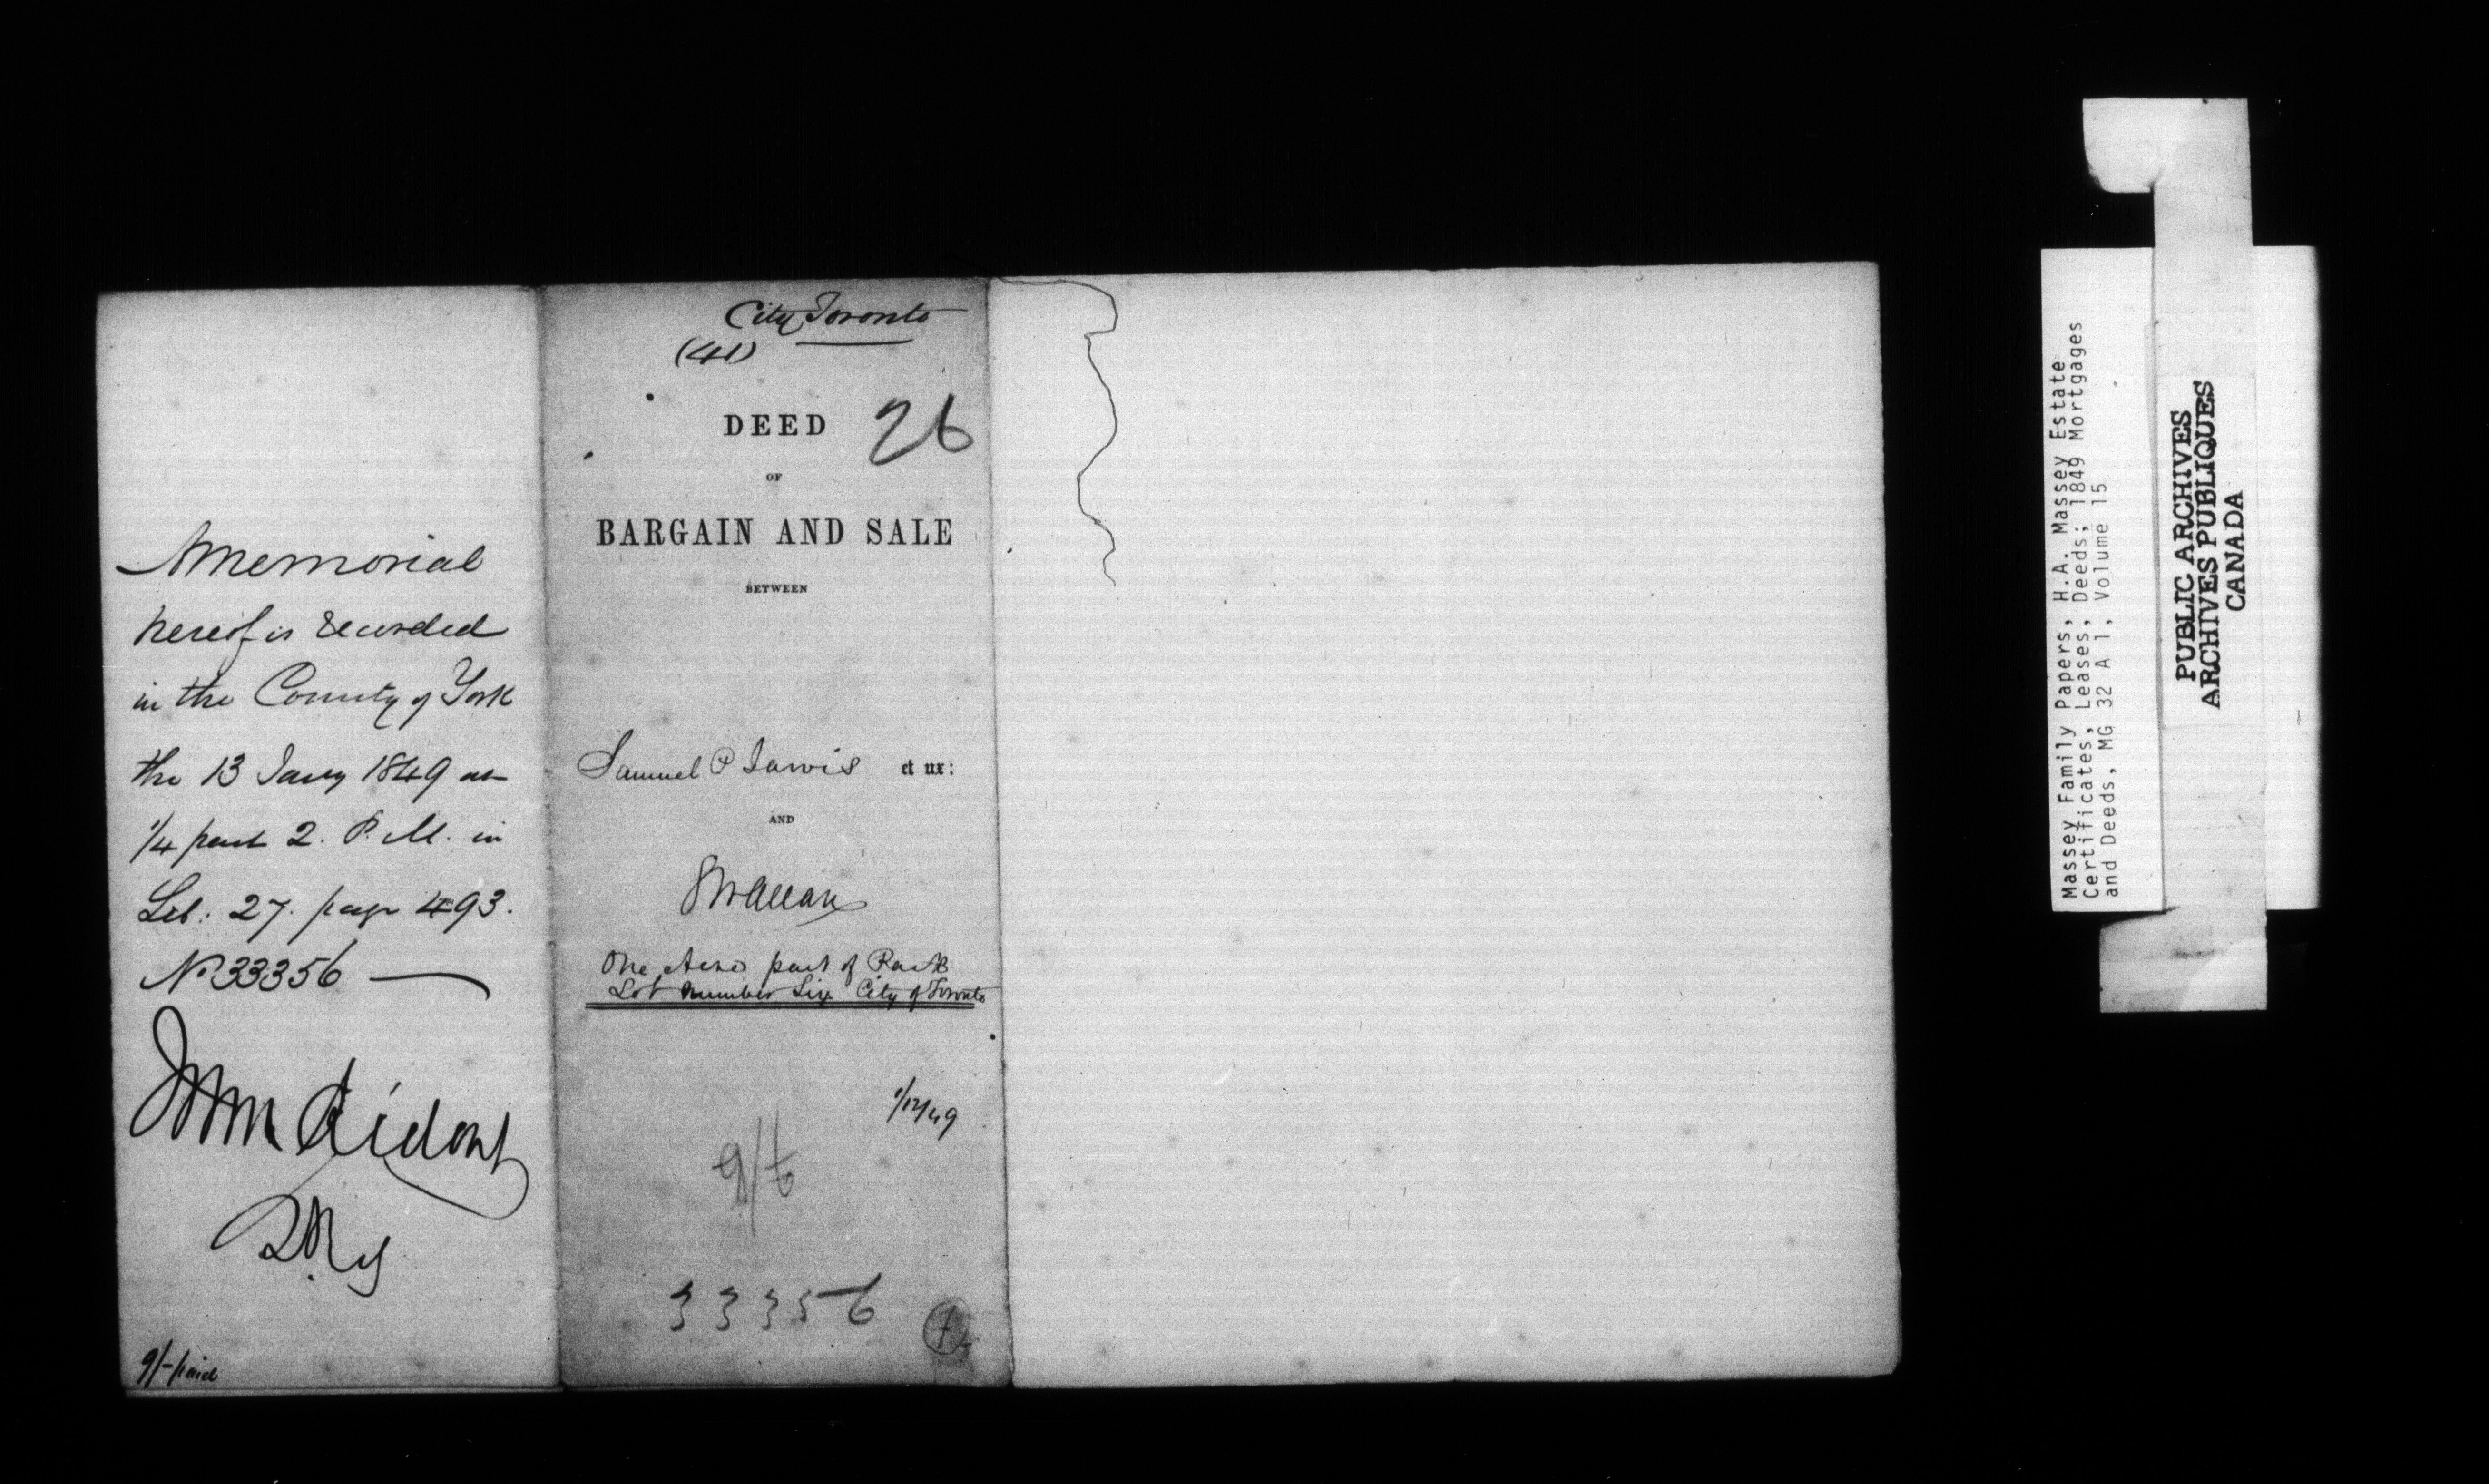 A memorial
hereof is recorded
in the County of York
the 13 Jany 1849 at
1/4 past 2. P.M. in
Lib: 27. page 493.
No 33356
9/- paid
City Toronto
(41)
DEED 26
OF
BARGAIN AND SALE
BETWEEN
Samuel P Jarvis et ux:
AND
One Acre part of Park
Lot number Six City of Toronto
33356
Massey Family Papers, H.A. Massey Estate
Certificates, Leases, Deeds; 1849 Mortgages
and Deeds, MG 32 A 1, Volume 15
PUBLIC ARCHIVES
ARCHIVES PUBLIQUES
CANADA